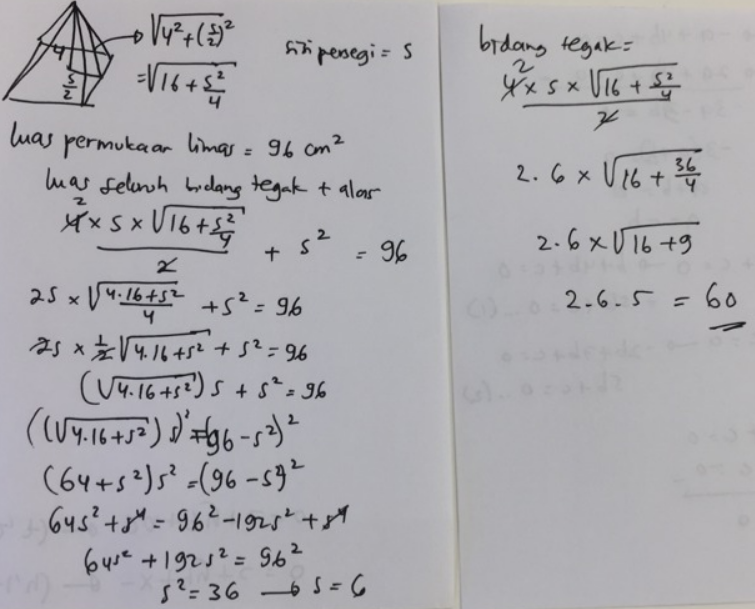 4
s/2
√(4² + (s/2)²)
= √(16 + s²/4)
sisi persegi = s
luas permukaan limas = 96 cm²
luas seluruh bidang tegak + alas
2
4 × s × √(16 + s²/4) / 2 + s² = 96
2s × √((4.16+s²)/4) + s² = 96
2s × 1/2 √(4.16+s²) + s² = 96
(√(4.16+s²)) s + s² = 96
((√(4.16+s²)) s)² = (96 - s²)²
(64 + s²) s² = (96 - s²)²
64s² + s⁴ = 96² - 192s² + s⁴
64s² + 192s² = 96²
s² = 36 → s = 6
bidang tegak =
2
4 × s × √(16 + s²/4) / 2
2. 6 × √(16 + 36/4)
2. 6 × √(16 + 9)
2. 6. 5 = 60